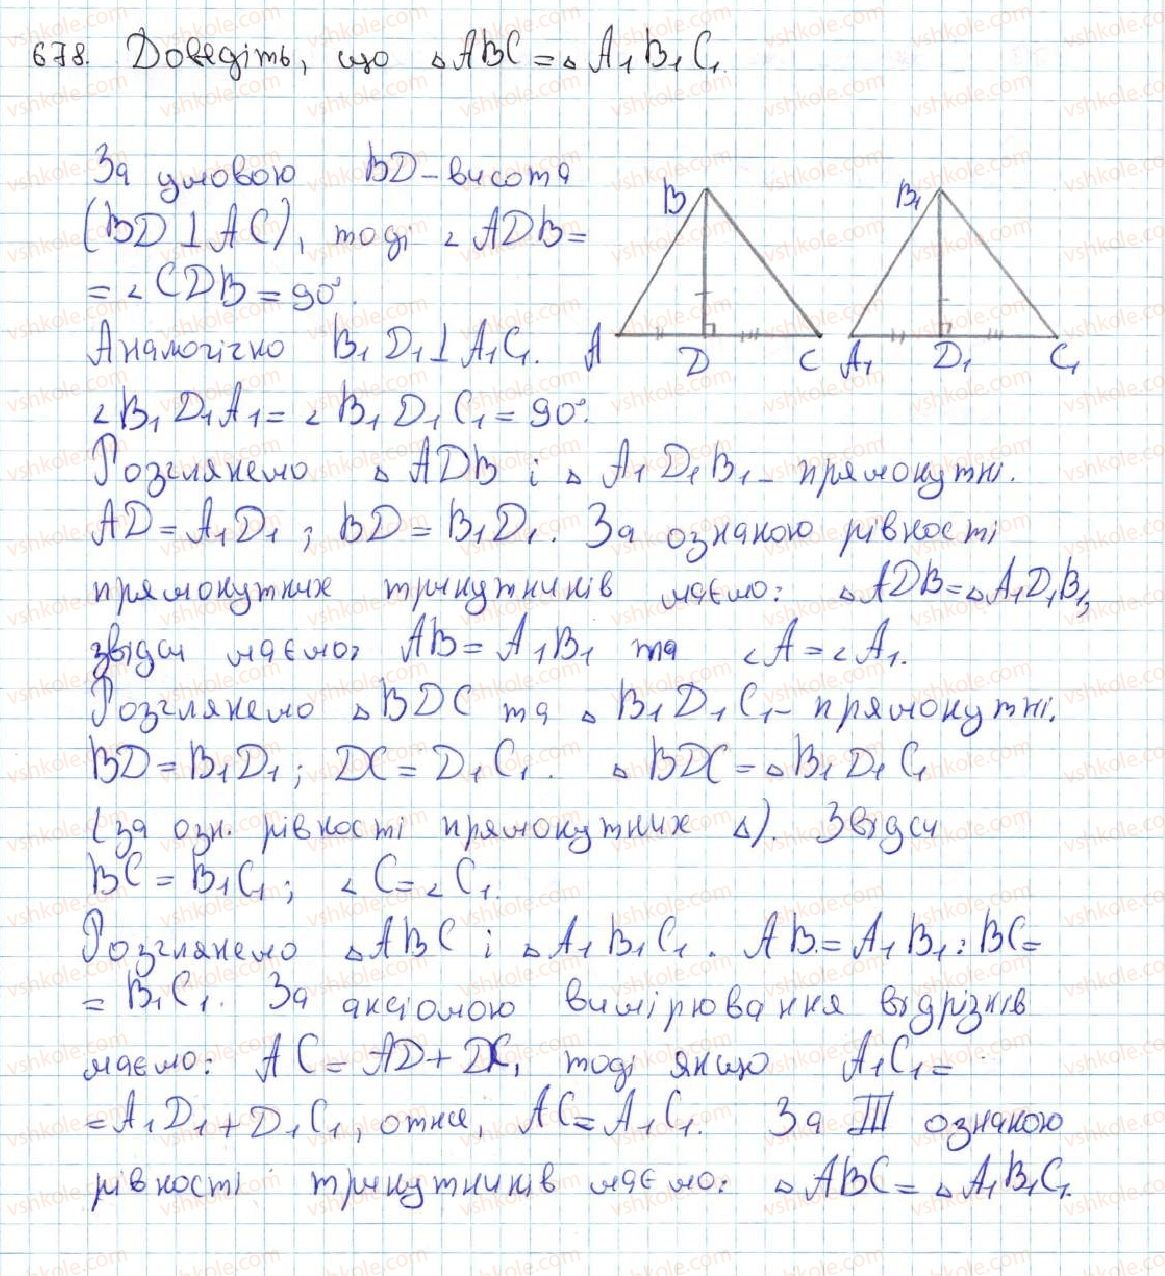 678. Доведіть, що △ABC = △A₁B₁C₁.
За умовою BD - висота
(BD ⊥ AC), тоді ∠ADB =
= ∠CDB = 90°.
Аналогічно B₁D₁ ⊥ A₁C₁.
∠B₁D₁A₁ = ∠B₁D₁C₁ = 90°.
B B₁
A D C A₁ D₁ C₁
Розглянемо △ADB і △A₁D₁B₁ - прямокутні.
AD = A₁D₁; BD = B₁D₁. За ознакою рівності
прямокутних трикутників маємо: △ADB = △A₁D₁B₁,
звідси маємо, AB = A₁B₁ та ∠A = ∠A₁.
Розглянемо △BDC та △B₁D₁C₁ - прямокутні.
BD = B₁D₁; DC = D₁C₁. △BDC = △B₁D₁C₁
(за озн. рівності прямокутних △). Звідси
BC = B₁C₁; ∠C = ∠C₁.
Розглянемо △ABC і △A₁B₁C₁. AB = A₁B₁: BC =
= B₁C₁. За аксіомою вимірювання відрізків
маємо: AC = AD + DC, тоді якщо A₁C₁ =
= A₁D₁ + D₁C₁, отже, AC = A₁C₁. За III ознакою
рівності трикутників маємо: △ABC = △A₁B₁C₁.
vshkole.com